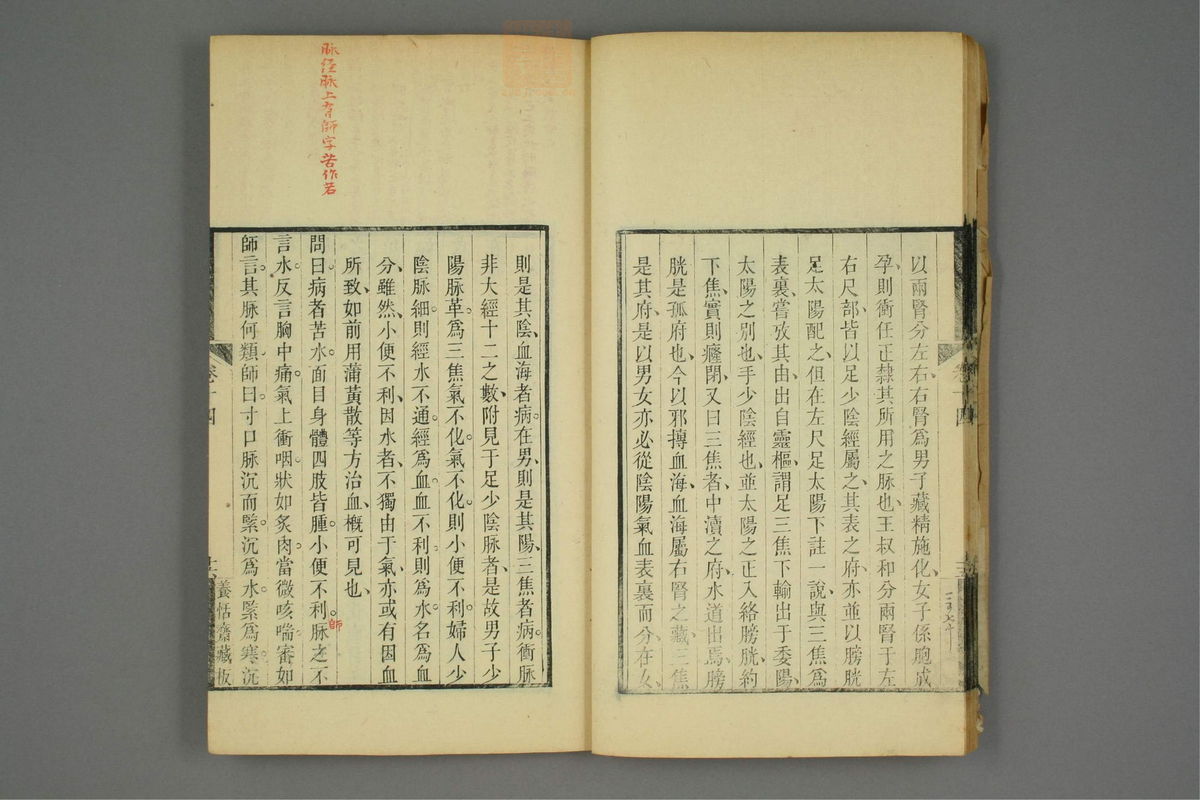 以兩腎分左右右腎爲男子藏精施化女子係胞成
孕則衝任正隸其所用之脉也王叔和分兩腎于左
右尺部皆以足少陰經屬之其表之府亦並以膀胱
足太陽配之但在左尺足太陽下註一說與三焦爲
表裏嘗攷其由出自靈樞謂足三焦下輸出于委陽
太陽之别也手少陰經也並太陽之正入絡膀胱約
下焦實則癃閉又曰三焦者中瀆之府水道出焉膀
胱是孤府也今以邪摶血海血海屬右腎之藏三焦
是其府是以男女亦必從陰陽氣血表裏而分在女
卷十四
則是其陰血海者病在男則是其陽三焦者病衝脉
非大經十二之數附見于足少陰脉者是故男子少
陽脉革爲三焦氣不化氣不化則小便不利婦人少
陰脉細則經水不通經爲血血不利則爲水名爲血
分雖然小便不利因水者不獨由于氣亦或有因血
所致如前用蒲黃散等方治血概可見也
問曰病者苦水面目身體四肢皆腫小便不利脉之不
師
言水反言胸中痛氣上衝咽狀如炙肉當微咳喘審如
師言其脉何類師曰寸口脉沉而緊沉爲水緊爲寒沉
卷十四
養恬齋藏板
脉經脉上有師字苦作若